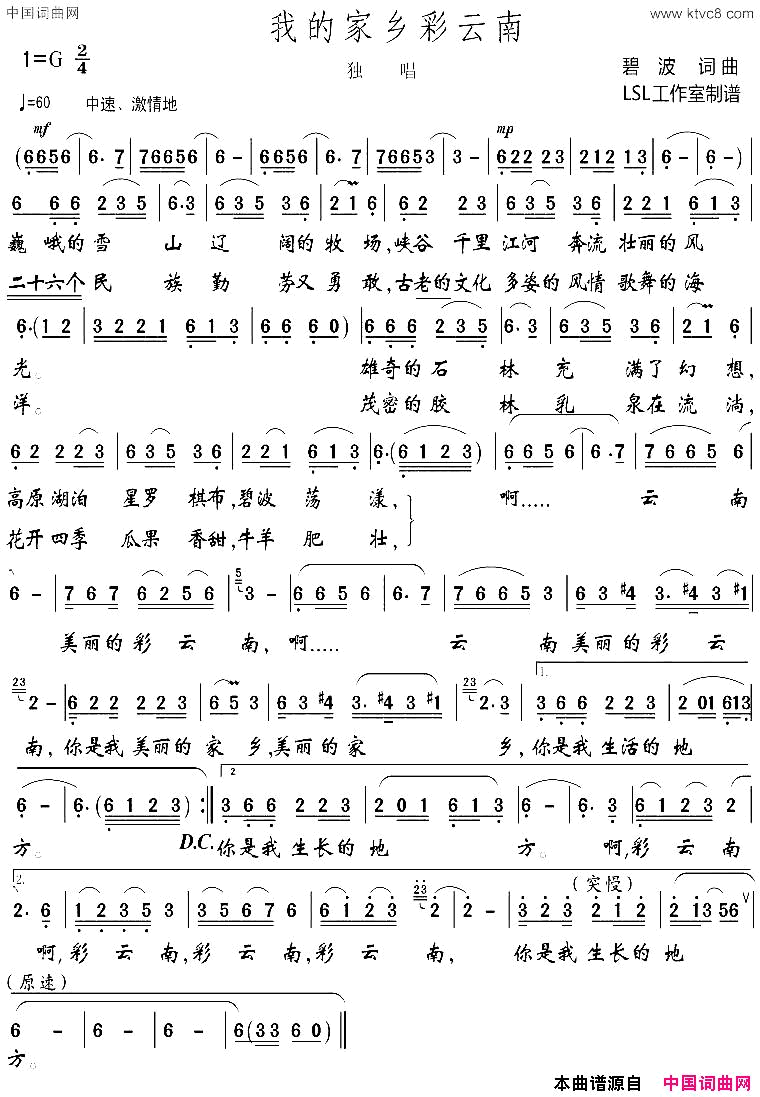 中国词曲网
www.ktvc8.com
我的家乡彩云南
1=G 2/4
独 唱
碧 波 词曲
LSL工作室制谱
♩=60 中速、激情地
mf mp
(6656 | 6·7 | 76656 | 6 - | 6656 | 6·7 | 76653 | 3 - | 622 23 | 212 13 | 6 - | 6 -) |
6 66 235 | 6·3 | 635 36 | 216 | 62 23 | 635 36 | 221 613 |
巍 峨的雪 山 辽 阔的牧 场,峡谷 千里 江河 奔流 壮丽的风
二十六个 民 族 勤 劳又勇 敢,古老的文化 多姿的风情 歌舞的海
6·(12 | 3221 613 | 66 60) | 666 235 | 6·3 | 635 36 | 21 6 |
光。 雄奇的 石 林 充 满了幻 想,
洋。 茂密的 胶 林 乳 泉在流 淌,
62 223 | 635 36 | 221 613 | 6·(6123) | 6665 | 6·7 | 7665 | 6
高原 湖泊 星罗 棋布,碧波 荡 漾, 啊..... 云 南
花开四季 瓜果 香甜,牛羊 肥 壮,
6 - | 767 6256 | 5 3 - | 6656 | 6·7 | 76653 | 63 #4 | 3·#43#1 |
美丽的彩 云 南,啊..... 云 南 美丽的彩 云
23 2 - | 622 223 | 653 | 633#4 | 3·#43#1 | 23 2·3 | 1. 366 223 | 201 613 |
南,你是我 美丽的 家 乡,美丽的家 乡,你是我 生活的 地
6 - | 6·(6123) :| 2 366 223 | 201 613 | 6 - | 6·3 | 6123 2 |
方。 D.C. 你是我 生长的 地 方。 啊,彩 云 南
2. 2·6 | 1235 | 3567 6 | 6123 | 23 2 | 2 - | 323 212 | 213 56 V |
(突慢)
啊,彩 云 南,彩 云 南,彩 云 南, 你是我 生长的 地
(原速)
6 - | 6 - | 6 - | 6(33 60) ||
方。
本曲谱源自 中国词曲网